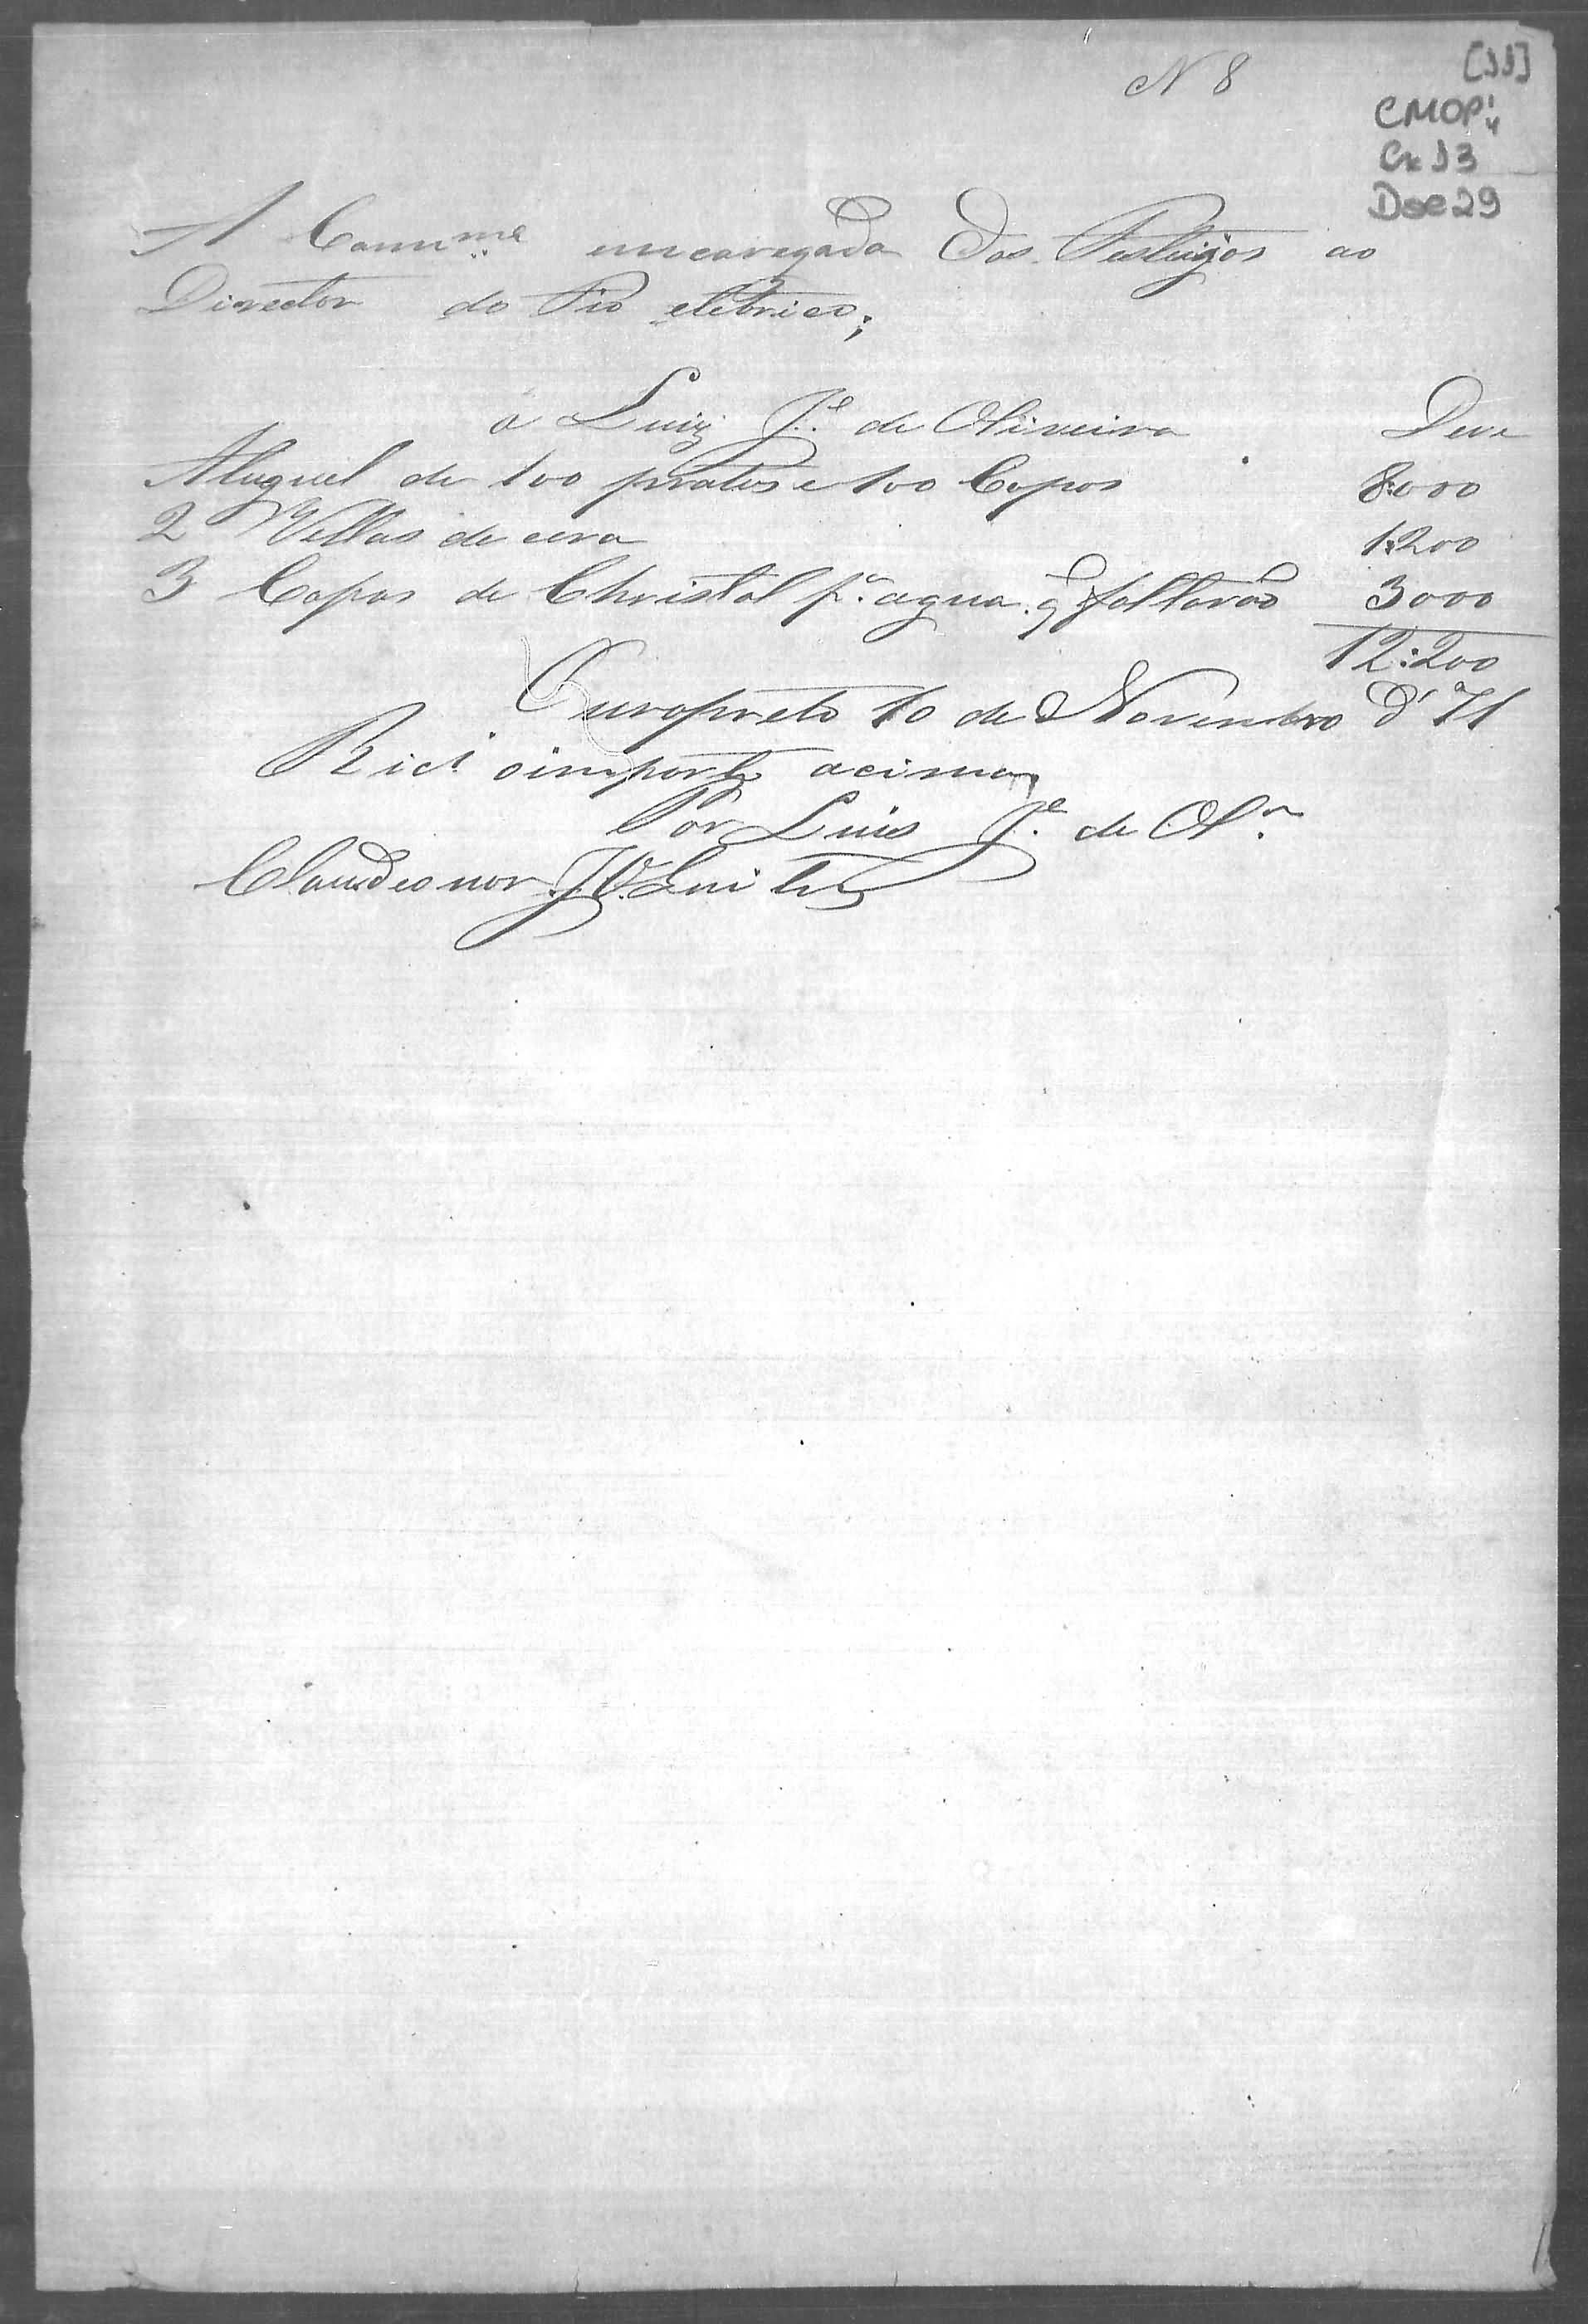 N 8
[11]
CMOP
Cx 13
Doc 29
A Comm encaregada dos Festeijos ao
Director do Fio eletrico;
a Luiz J.e de Oliveira Deve
Aluguel de 100 pratos e 100 Copos 8:000
2 Vellas de cera 1:200
3 Copos de Christal p.a agua q faltarão 3000
12:200
Ouropreto 10 de Novembro d' 71
Rici o importe acima
Por Luis J.e de Ol.ra
Claudeonor J.